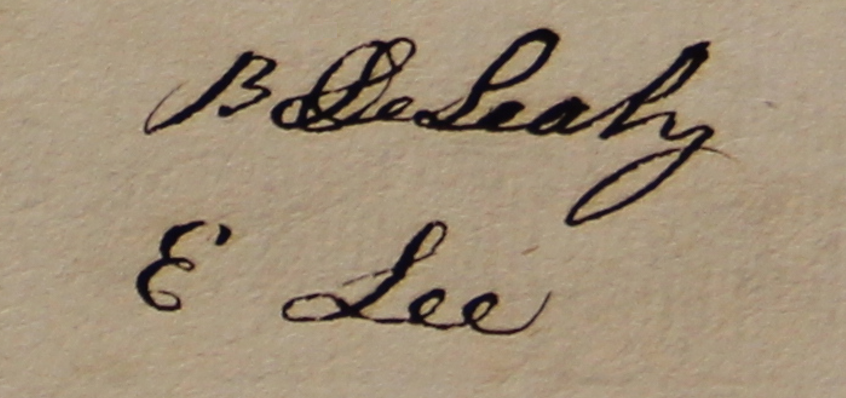 B DeLeahy
E Lee